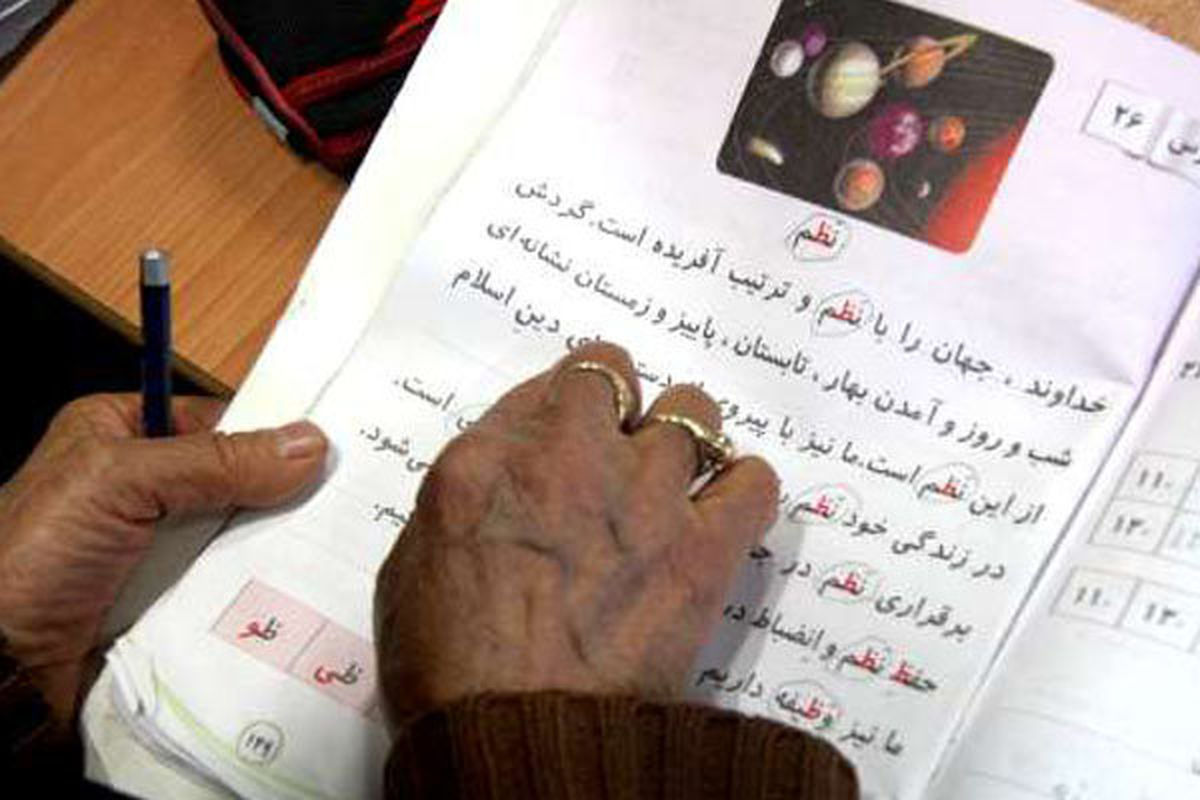 درس ۲۶
نظم
خداوند، جهان را با نظم و ترتیب آفریده است. گردش
شب و روز و آمدن بهار، تابستان، پاییز و زمستان نشانه‌ای
از این نظم است. ما نیز با پیروی دین اسلام
در زندگی خود نظم است.
برقراری نظم در می‌شود.
حفظ نظم و انضباط در
ما نیز وظیفه داریم
ظی ظو
۱۲۹
۱۱۰
۱۳۰
۱۱۰ ۱۳۰